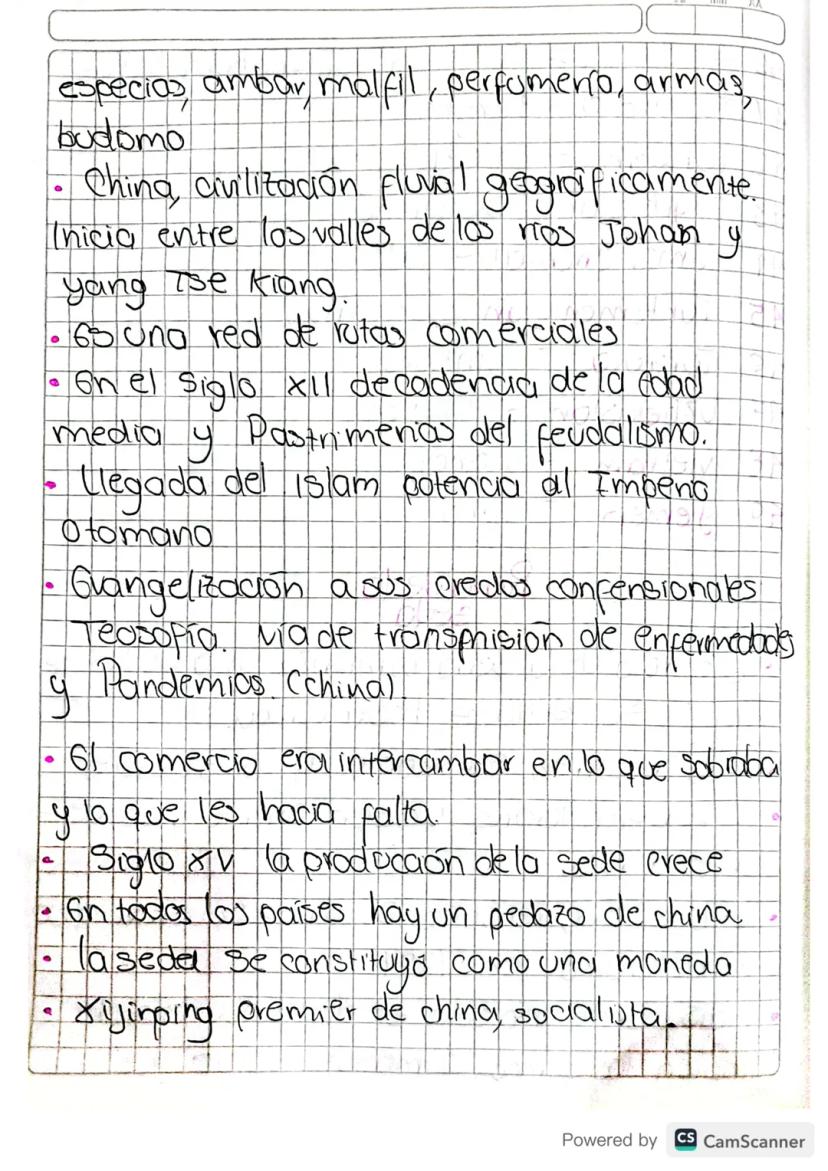 especias, ambar, malfil, perfumería, armas,
budomo
• China, civilización fluvial geográficamente.
Inicia entre los valles de los ríos Johan y
yang Tse Kiang.
• Es una red de rutas comerciales
• En el siglo XII decadencia de la Edad
media y Pastrimerias del feudalismo.
• Llegada del Islam potencia al Imperio
Otomano
• Evangelización a sus credos confensionales
Teosofía. Vía de transmisión de enfermedades
y Pandemias. (china).
• El comercio era intercambar en lo que sobraba
y lo que les hacia falta.
• Siglo XV la producción de la sede crece
• En todos los países hay un pedazo de china
• la seda se constituyó como una moneda
• Xijinping premier de china, socialista.
Powered by CS CamScanner